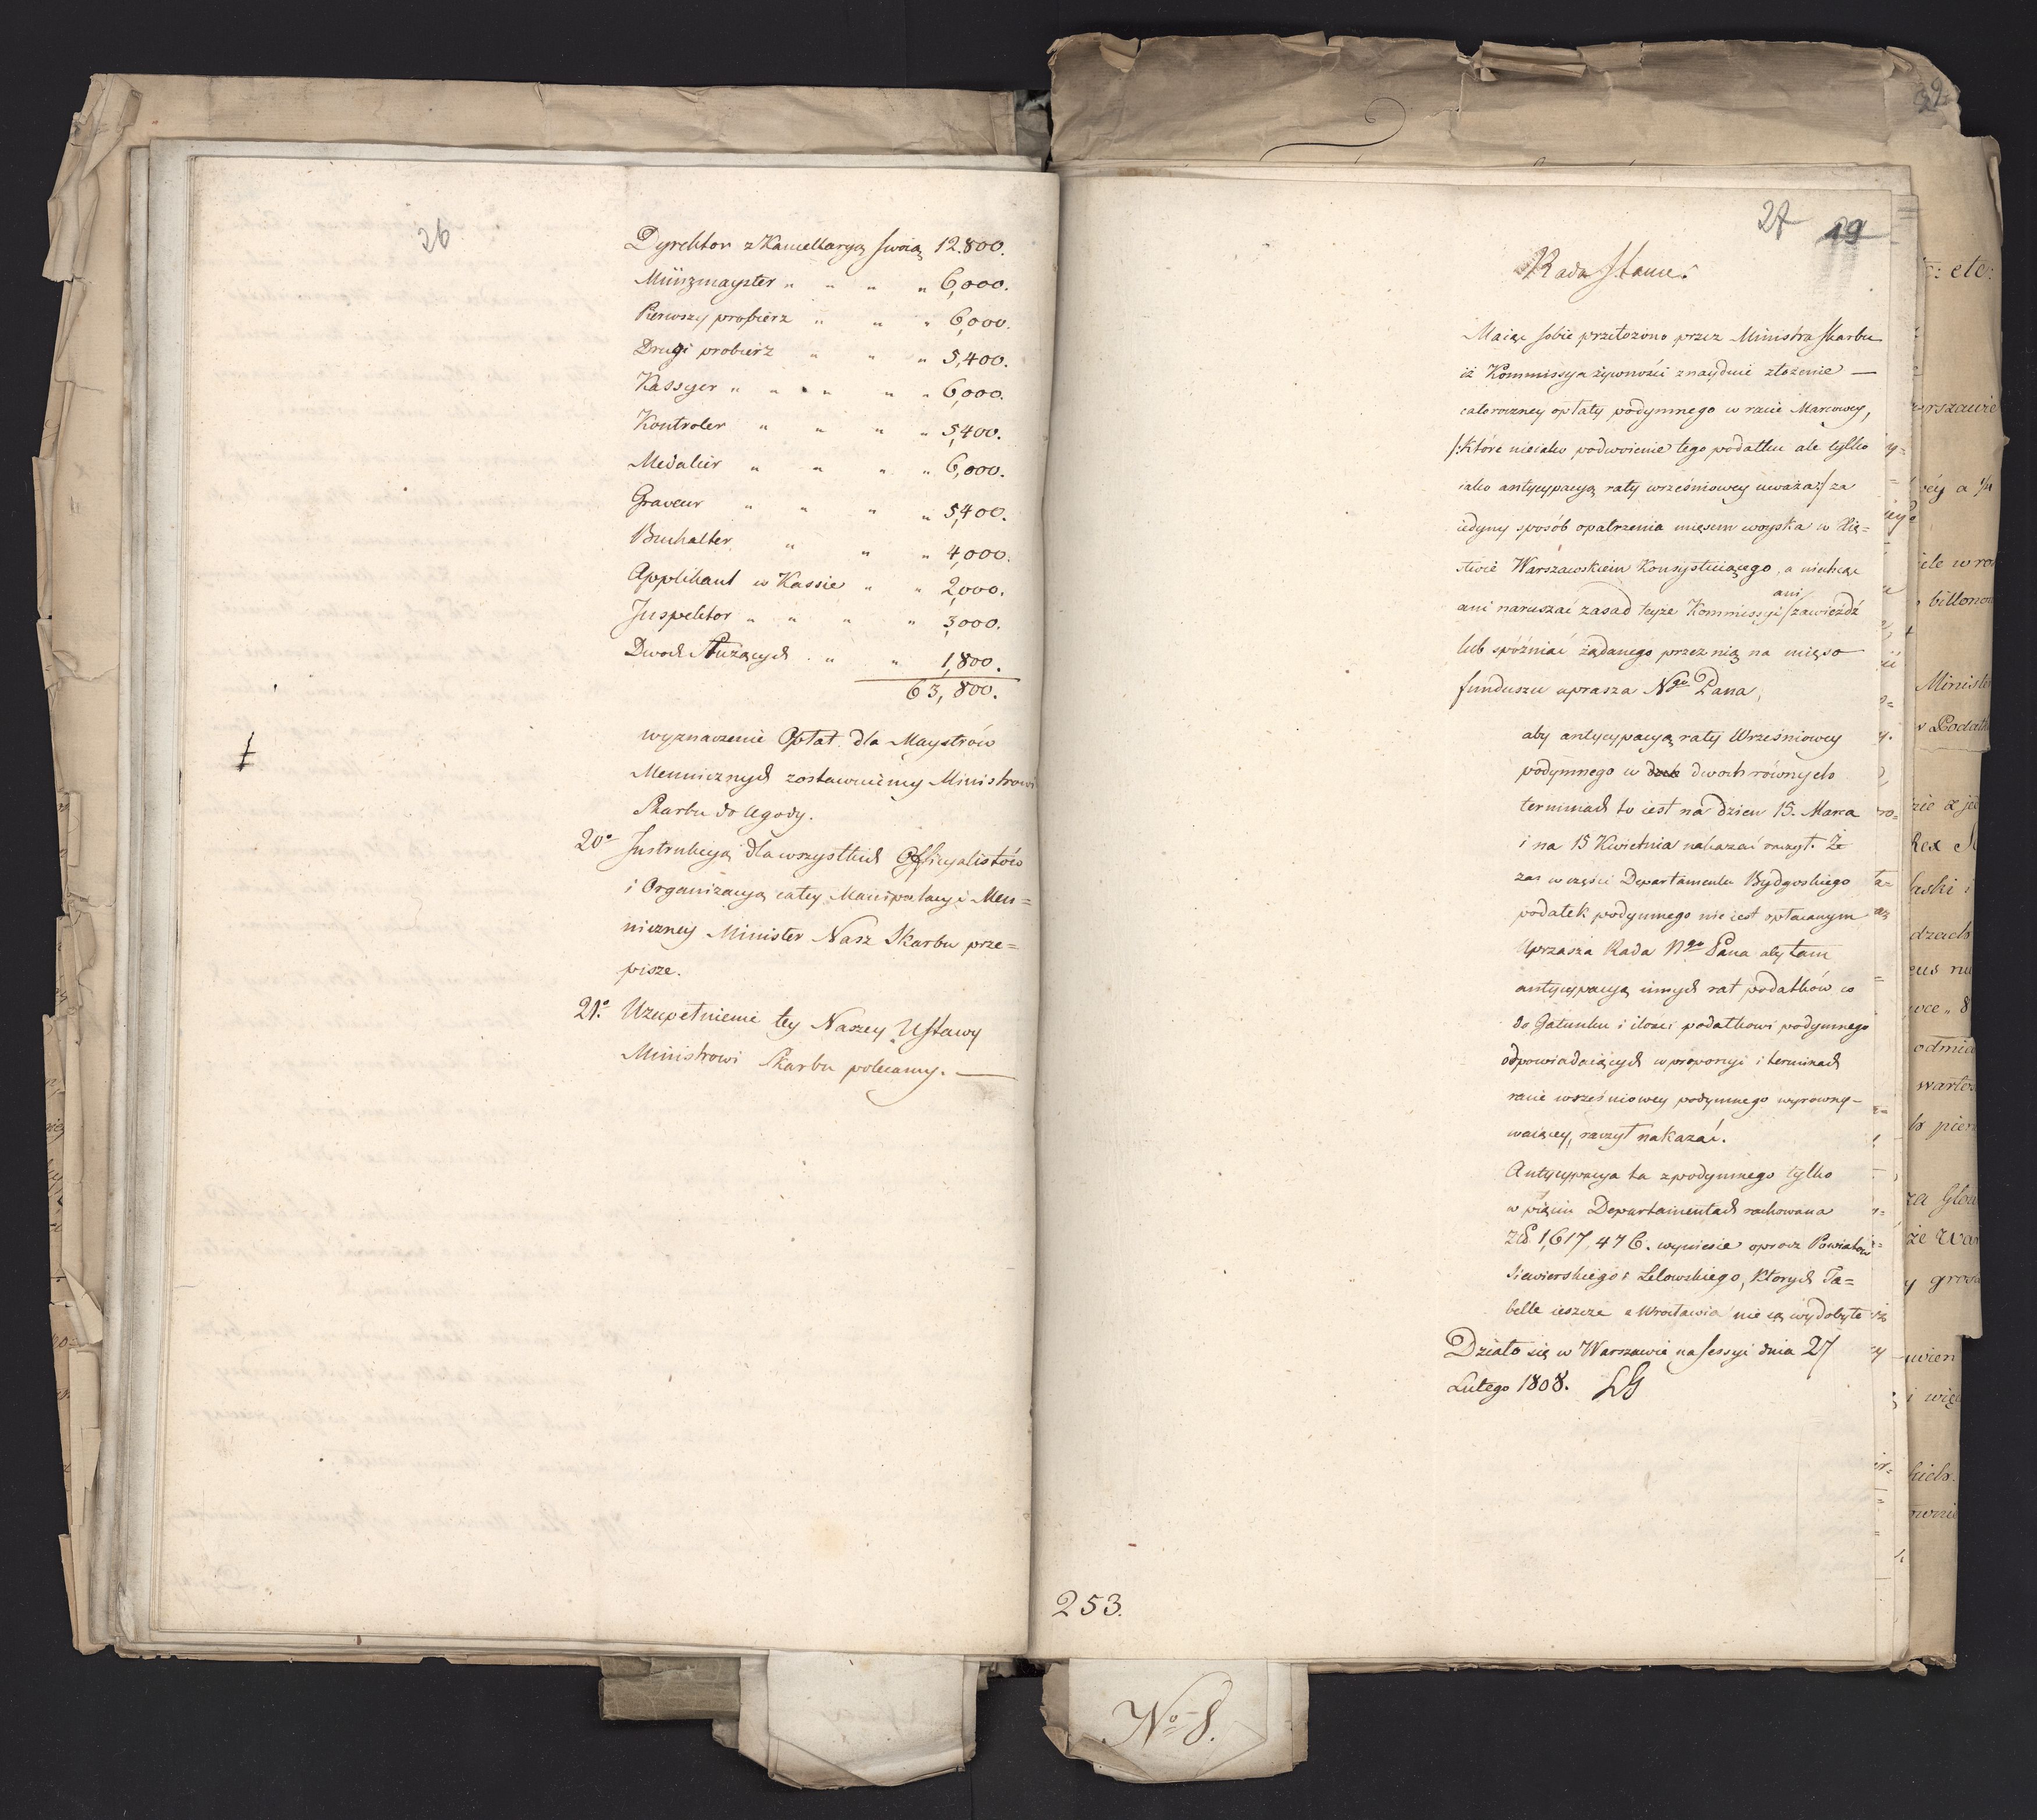 26
Dyrektor z Kancellaryą swoią 12.800.
Münzmayster " " " " 6,000.
Pierwszy probierz " " " 6,000.
Drugi probierz " " " 5,400.
Kassyer " " " " " 6,000.
Kontroler " " " " 5,400.
Medalier " " " " 6,000.
Graveur " " " " 5,400.
Buchalter " " " 4,000.
Applikant w Kassie " " 2,000.
Inspektor " " " " 3,000.
Dwóch Służących " " 1,800.
63,800.
wyznaczenie Opłat dla Maystrów
Mennicznych zostawuiemy Ministrowi
Skarbu do Ugody.
20° Instrukcyą dla wszystkich Officyalistów
i Organizacyą całey Manipulacyi Men=
niczney Minister Nasz Skarbu prze=
pisze.
21° Uzupełnienie tey Naszey Ustawy
Ministrowi Skarbu polecamy. —
27 19
Rada Stanu.
Maiąc sobie przełożono przez Ministra Skarbu
iż Kommissya żywności znayduie złożenie —
całoroczney opłaty podymnego w racie Marcowey,
/:które nieiako podwoienie tego podatku ale tylko
iako antycypacyą raty wrześniowey uważa:/ za
iedyny sposób opatrzenia mięsem woyska w Xię=
stwie Warszawskiem Konsystuiącego, a niechcąc
ani naruszać zasad teyże Kommissyi ani zawieźdź
lub spóźniać żądanego przez nią na mięso
funduszu uprasza Ngo Pana,
aby antycypacyą raty Wrześniowey
podymnego w dwóch równych
terminach to iest na dzien 15. Marca
i na 15 Kwietnia nakazać raczył. Że
zaś w części Departamentu Bydgoskiego
podatek podymnego nie iest opłacanym
Uprasza Rada Ngo Pana aby tam
antycypacyą innych rat podatków co
do Gatunku i ilości podatkowi podymnego
odpowiadaiących w proporcyi i terminach
racie wrześniowey podymnego wyrówny=
waiącey, raczył nakazać.
Antycypacya ta z podymnego tylko
w pięciu Departamentach rachowana
zł. 1,617,476. wyniesie oprócz Powiatów
Siewierskiego i Lelowskiego, których Ta=
belle ieszcze z Wrocławia nie są wydobyte
Działo się w Warszawie na Sessyi dnia 27
Lutego 1808.
253.
No 8.